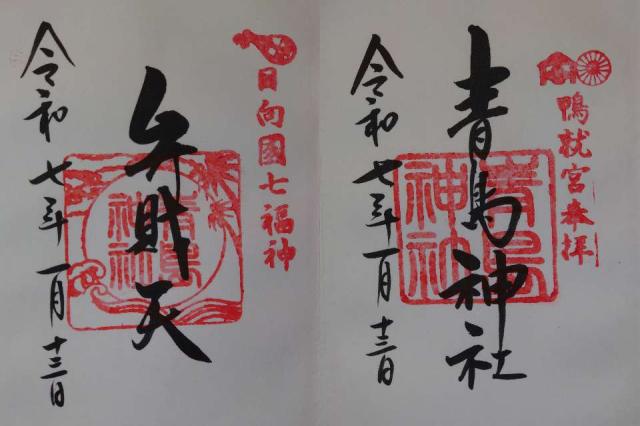 鴨就宮参拝
青島神社
青島神社
令和七年一月十三日
日向國七福神
弁財天
青島神社
令和七年一月十三日